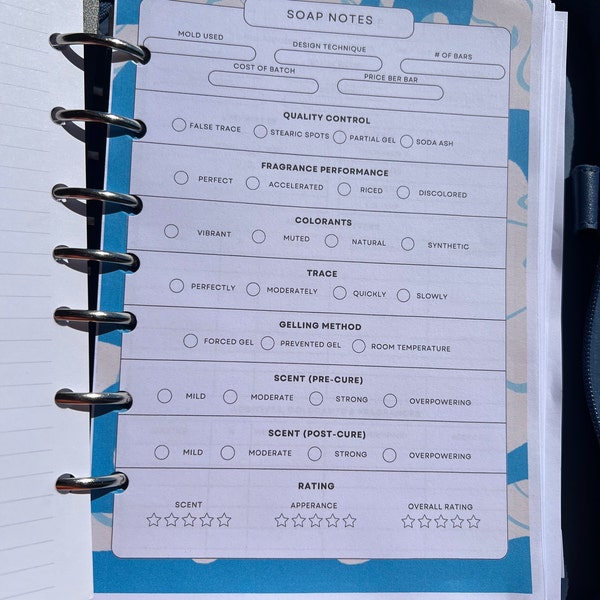 SOAP NOTES
MOLD USED DESIGN TECHNIQUE # OF BARS
COST OF BATCH PRICE BER BAR
QUALITY CONTROL
FALSE TRACE STEARIC SPOTS PARTIAL GEL SODA ASH
FRAGRANCE PERFORMANCE
PERFECT ACCELERATED RICED DISCOLORED
COLORANTS
VIBRANT MUTED NATURAL SYNTHETIC
TRACE
PERFECTLY MODERATELY QUICKLY SLOWLY
GELLING METHOD
FORCED GEL PREVENTED GEL ROOM TEMPERATURE
SCENT (PRE-CURE)
MILD MODERATE STRONG OVERPOWERING
SCENT (POST-CURE)
MILD MODERATE STRONG OVERPOWERING
RATING
SCENT APPERANCE OVERALL RATING